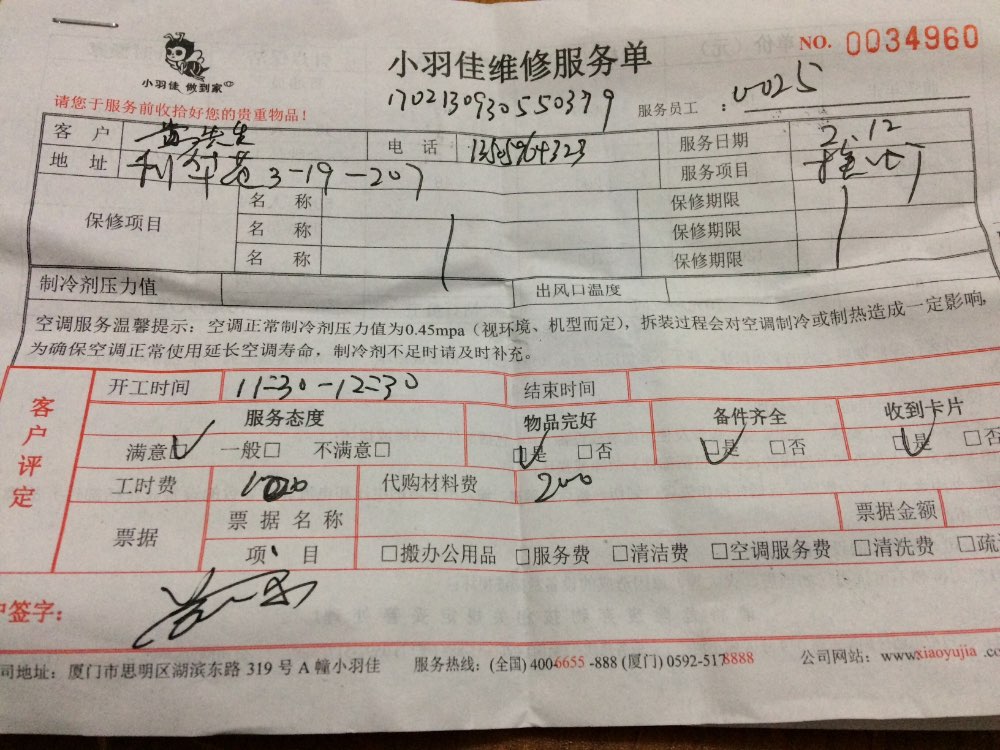 小羽佳 做到家
小羽佳维修服务单
NO. 0034960
1702130930550379
请您于服务前收拾好您的贵重物品!
服务员工 : 0025
客 户 黄先生 电 话 服务日期 2.12
地 址 3-19-207 服务项目
保修项目 名 称 保修期限
名 称 保修期限
名 称 保修期限
制冷剂压力值 出风口温度
空调服务温馨提示：空调正常制冷剂压力值为0.45mpa（视环境、机型而定），拆装过程会对空调制冷或制热造成一定影响,
为确保空调正常使用延长空调寿命，制冷剂不足时请及时补充。
客户评定
开工时间 11:30-12:30 结束时间
服务态度 物品完好 备件齐全 收到卡片
满意□ 一般□ 不满意□ □是 □否 □是 □否 □是 □否
工时费 代购材料费 200
票据 票据名称 票据金额
项 目 □搬办公用品 □服务费 □清洁费 □空调服务费 □清洗费 □疏
户签字:
司地址: 厦门市思明区湖滨东路 319 号 A 幢小羽佳 服务热线: (全国) 400-6655 -888 (厦门) 0592-5178888 公司网站: www.xiaoyujia .cc